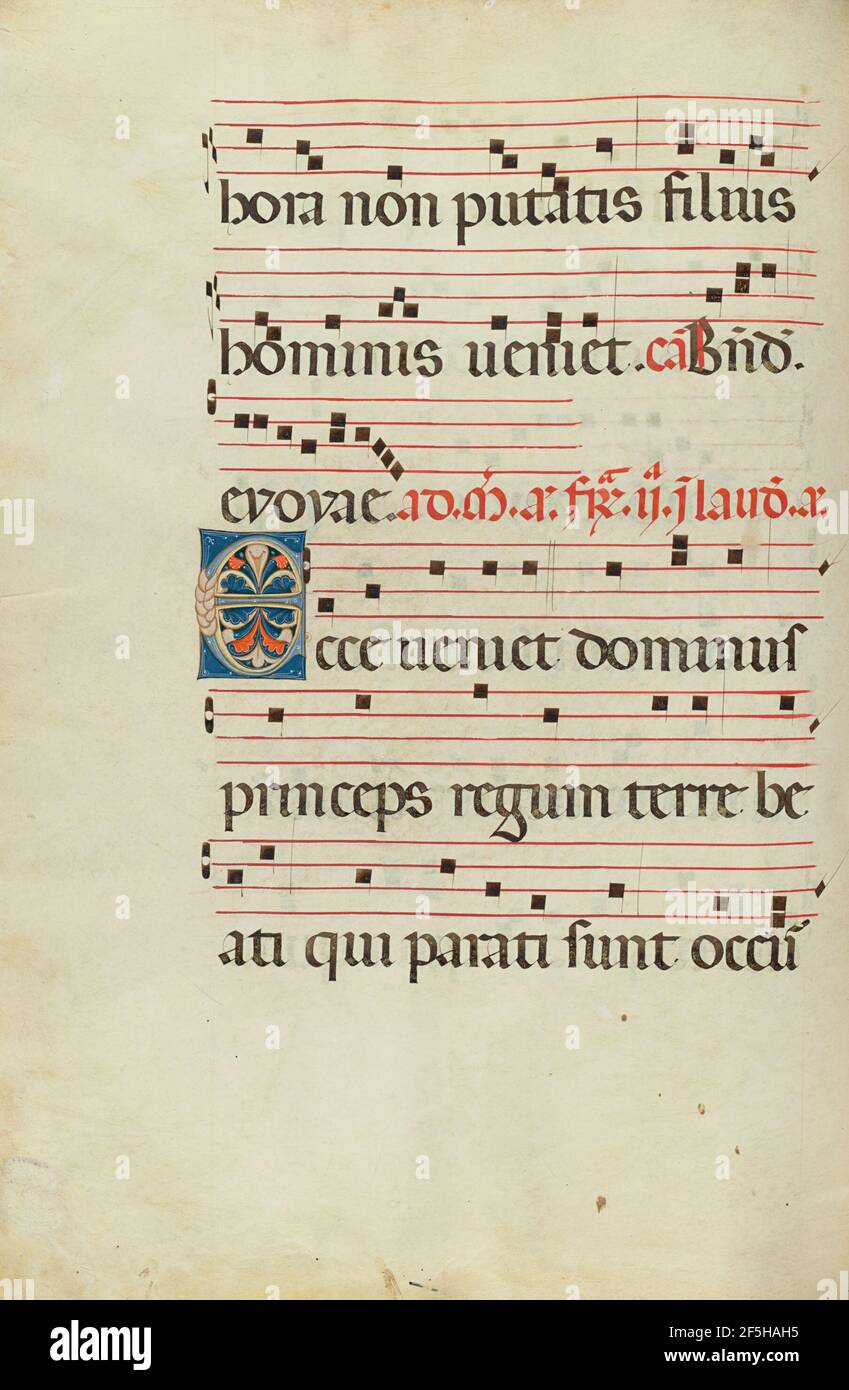 hora non putatis filius
hominis ueniet. cā Bn̄d̄.
evovae. ad. m̄. a. fr̄. ij. ī laud̄. a.
Ecce ueniet dominus
princeps regum terre be
ati qui parati sunt occū
alamy
Image ID: 2F5HAH5
www.alamy.com